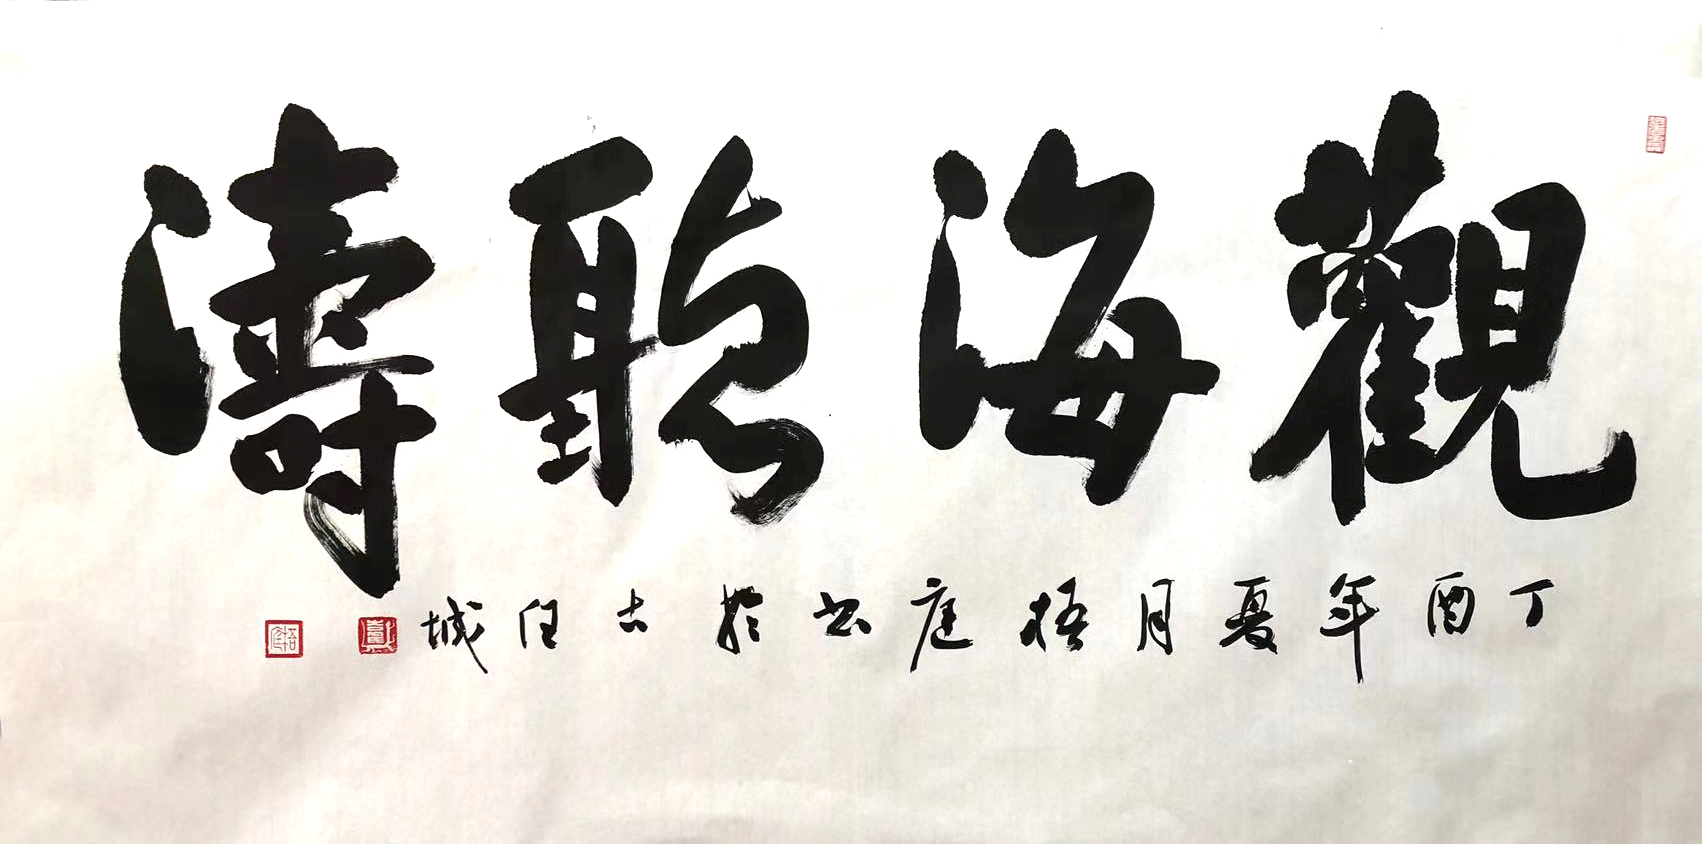 觀海聽濤
丁酉年夏月梧庭书於古任城